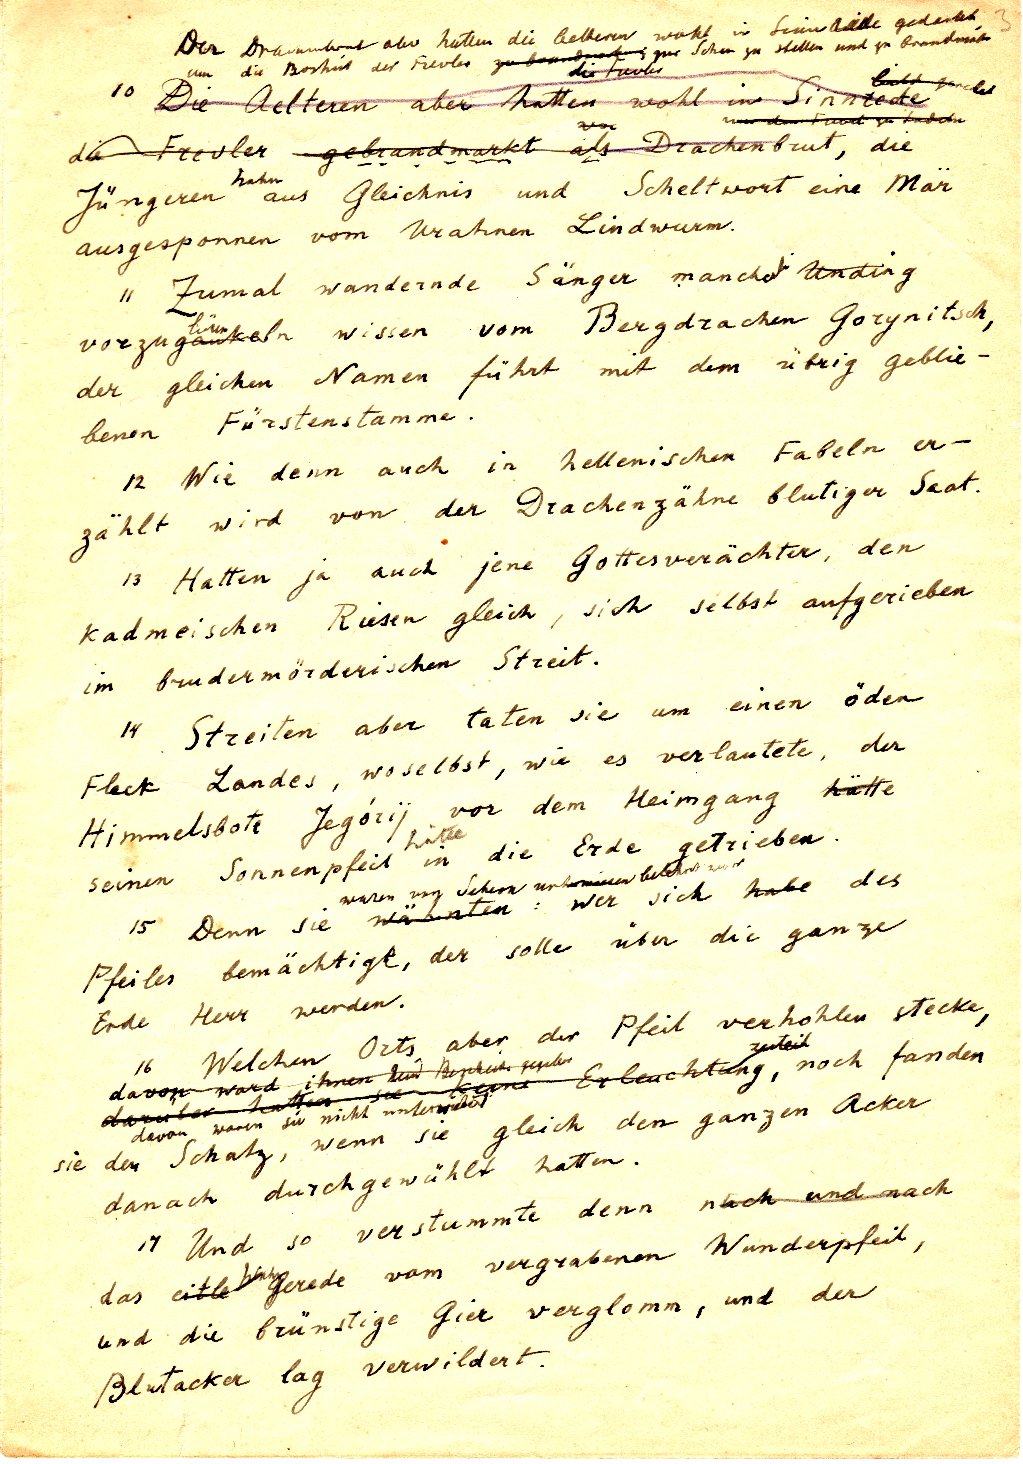 Der Drachenbrut aber hatten die Aelteren wohl in Sinnrede gedacht, 3
um die Bosheit der Frevler zu brandmarken zur Schau zu stellen und zu brandmarken
die Frevler
10 Die Aelteren aber hatten wohl in Sinnrede
die Frevler gebrandmarkt als Drachenbrut, die
von
Jüngeren hahn aus Gleichnis und Scheltwort eine Mär
ausgesponnen vom Urahnen Lindwurm.
11 Zumal wandernde Sänger manches Unding
vorzugaukeln wissen vom Bergdrachen Gorynitsch,
der gleichen Namen führt mit dem übrig geblie-
benen Fürstenstamme.
12 Wie denn auch in hellenischen Fabeln er-
zählt wird von der Drachenzähne blutiger Saat.
13 Hatten ja auch jene Gottesverächter, den
kadmeischen Riesen gleich, sich selbst aufgerieben
im brudermörderischen Streit.
14 Streiten aber taten sie um einen öden
Fleck Landes, woselbst, wie es verlautete, der
Himmelsbote Jegórij vor dem Heimgang hätte
seinen Sonnenpfeil hätte in die Erde getrieben.
waren von Sehern belehrt
15 Denn sie wähnten: wer sich habe des
Pfeiles bemächtigt, der solle über die ganze
Erde Herr werden.
16 Welchen Orts aber der Pfeil verhohlen stecke,
davon ward ihnen kein Bescheid gegeben zuteil
darüber hatten sie keine Erleuchtung, noch fanden
davon waren sie nicht unterrichtet
sie den Schatz, wenn sie gleich den ganzen Acker
danach durchgewühlt hatten.
17 Und so verstummte denn nach und nach
das eitle Gerede vom vergrabenen Wunderpfeil,
und die brünstige Gier verglomm, und der
Blutacker lag verwildert.